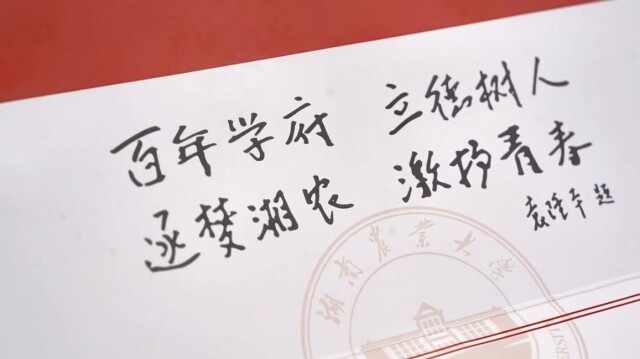 百年学府 立德树人
逐梦湘农 激扬青春
袁隆平题
湖南农业大学